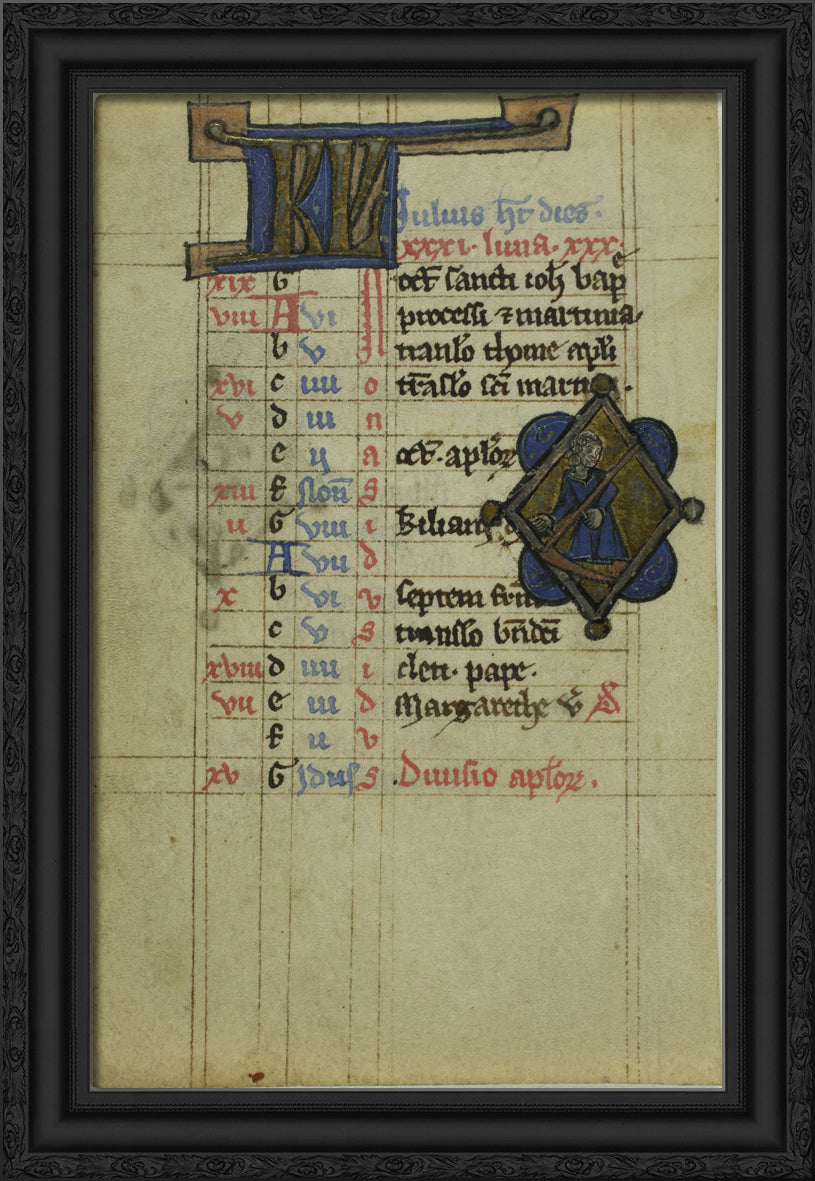 KL Iulius ht dies
xxxi. luna. xxx.
xix G oct sancti ioh bapte
viii A vi processi & martinia.
b v translo thome apli
xvi c iiii o traslo sci martini.
v d iii n
e ii a oct. aplor
xiii f Non s
ii G viii i kiliani
A vii d
x b vi v septem frm
c v s translo bndcti
xviii d iiii i cleti. pape.
vii e iii d Margarethe v
f ii v
xv G Idus s Diuisio aplor.